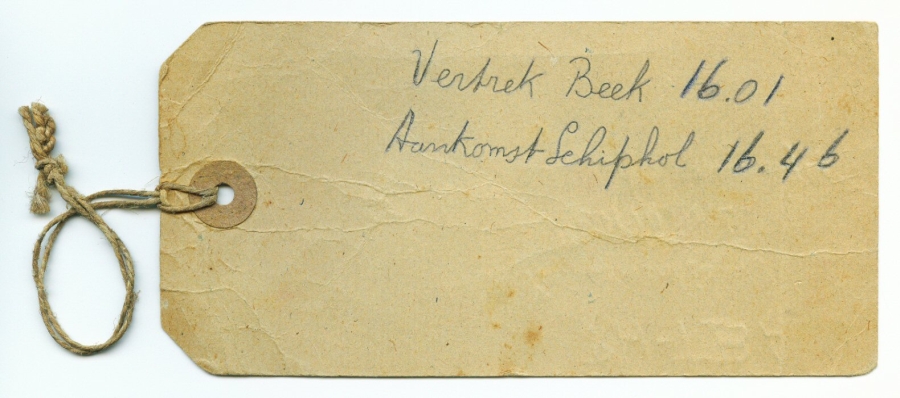 Vertrek Beek 16.01
Aankomst Schiphol 16.46